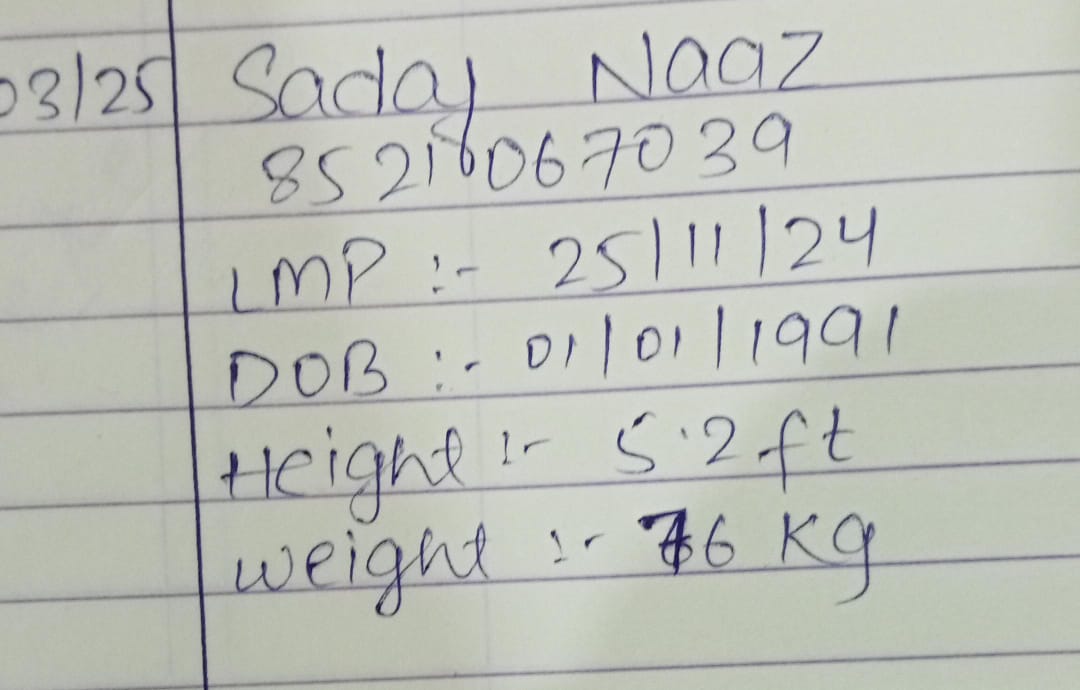 03/25 Sadaf Naaz
8521067039
LMP :- 25/11/24
DOB :- 01/01/1991
Height :- 5.2 ft
weight :- 76 Kg